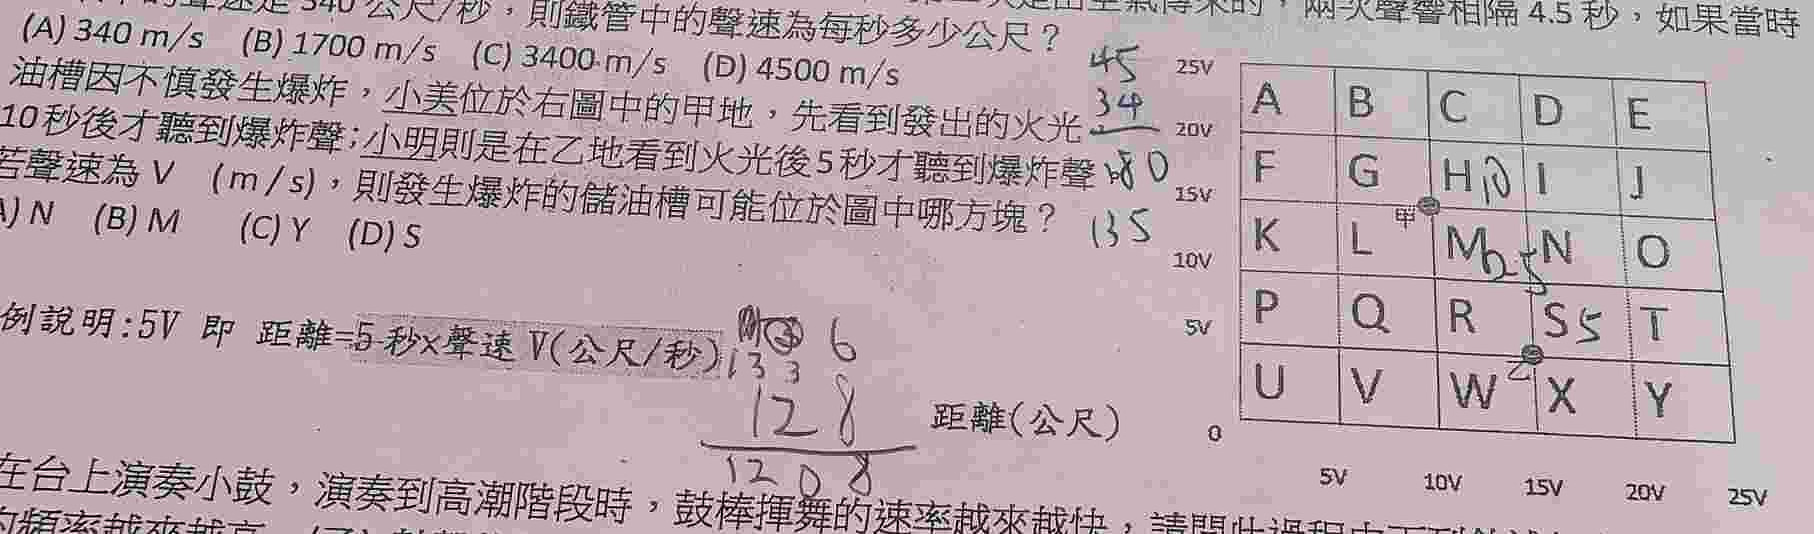 340 公尺/秒，則鐵管中的聲速為每秒多少公尺？
兩次聲響相隔 4.5 秒，如果當時
(A) 340 m/s (B) 1700 m/s (C) 3400 m/s (D) 4500 m/s
油槽因不慎發生爆炸，小美位於右圖中的甲地，先看到發出的火光
10 秒後才聽到爆炸聲;小明則是在乙地看到火光後 5 秒才聽到爆炸聲
若聲速為 V (m/s)，則發生爆炸的儲油槽可能位於圖中哪方塊？
A) N (B) M (C) Y (D) S
45
34
180
135
25V A B C D E
20V F G H 10 I J
15V 甲
K L M N O
10V P Q R S 5 T
5V 乙
U V W X Y
0
5V 10V 15V 20V 25V
距離(公尺)
例說明:5V 即 距離=5 秒×聲速 V(公尺/秒)
6
133
128
1208
在台上演奏小鼓，演奏到高潮階段時，鼓棒揮舞的速率越來越快，請問此過程中下列
的頻率越來越高